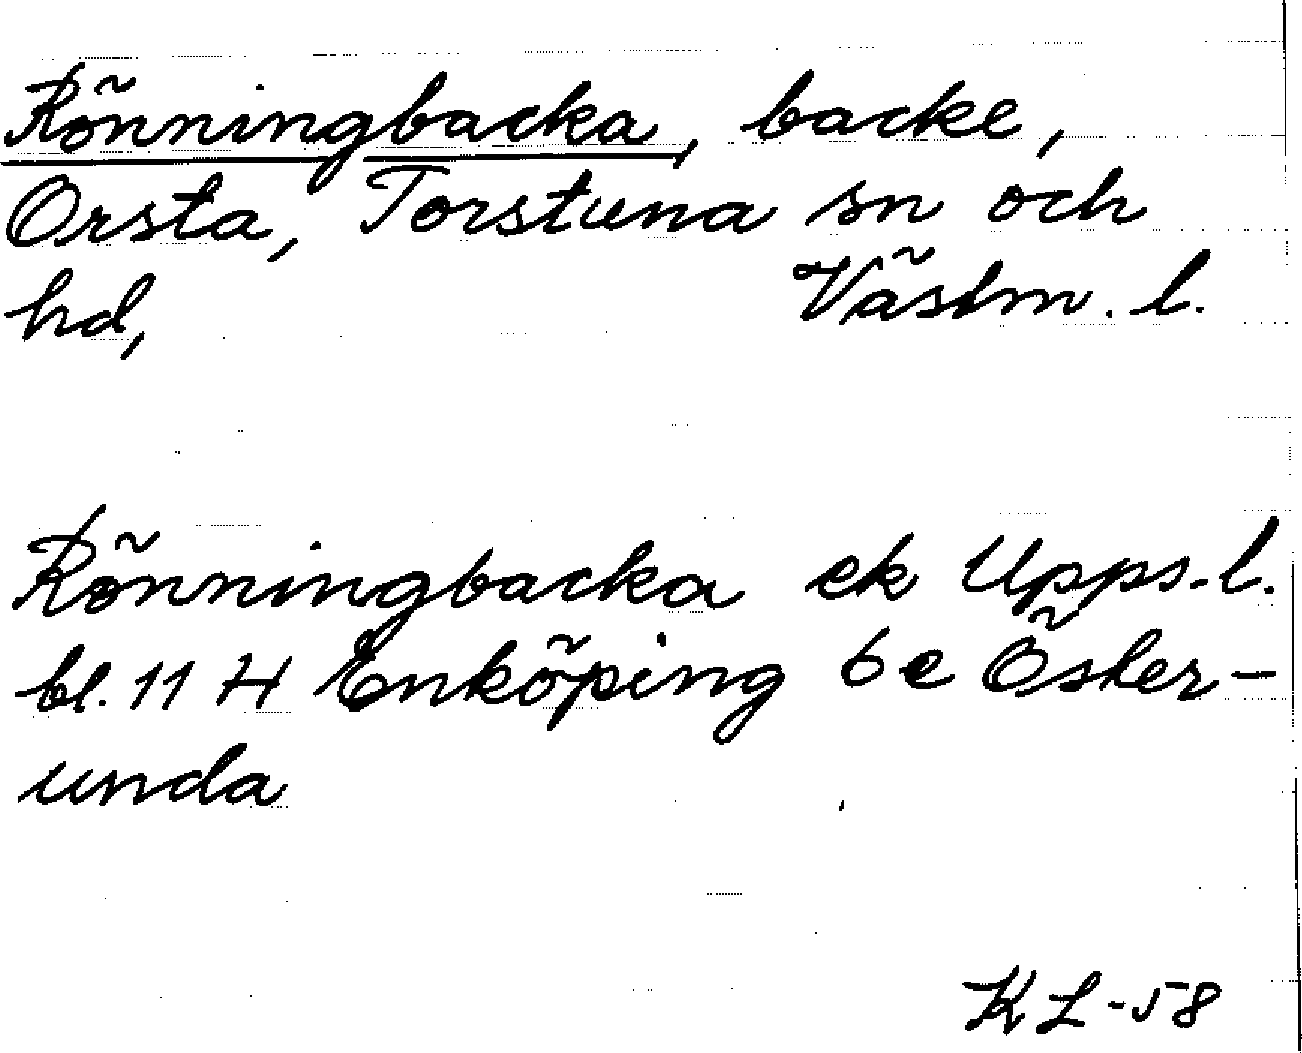 Rönningbacka, backe,
Orsta, Torstuna sn och
hd, Västm. l.
Rönningbacka ek Upps. l.
bl. 11 H Enköping 6 e Öster-
unda
KL-58